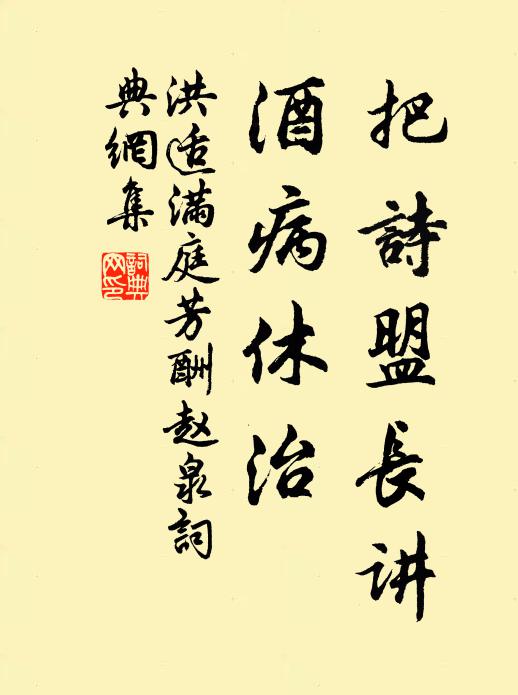 把詩盟長讲
酒病休治
洪适满庭芳酬赵泉詞
典網集
詞典网印